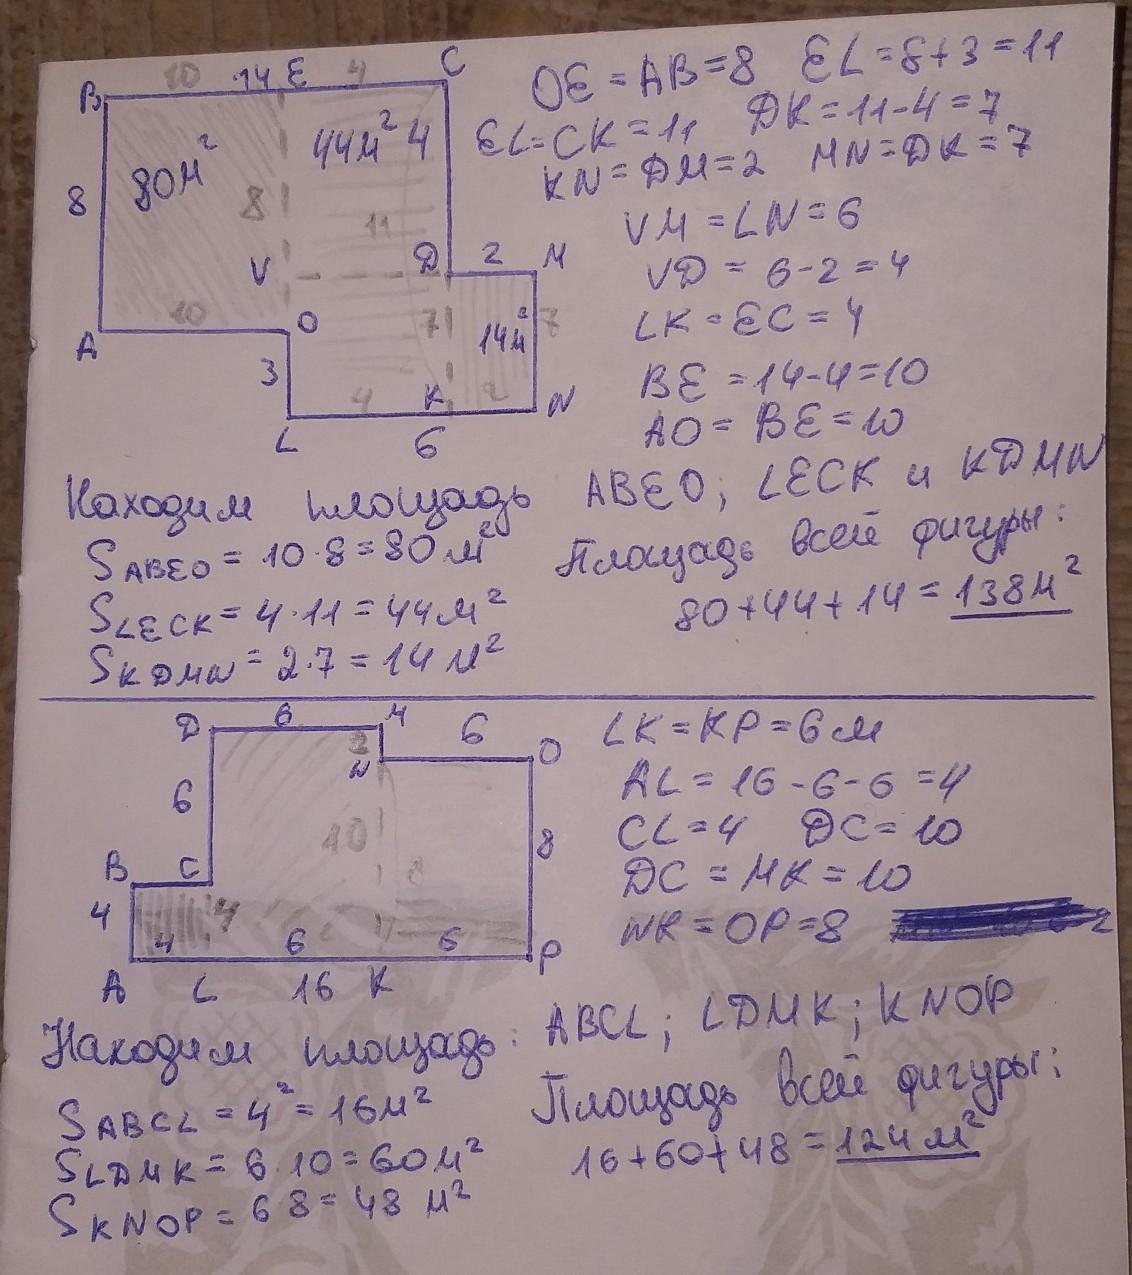 10 14 E 4 C
B
80м² 44м² 4
8 8
11
V D 2 M
10 O 7 14м² 7
A
3
4 K 2 N
L 6
OE = AB = 8 EL = 8+3 = 11
EL = CK = 11 DK = 11-4 = 7
KN = DM = 2 MN = DK = 7
VM = LN = 6
VD = 6-2 = 4
LK = EC = 4
BE = 14-4 = 10
AO = BE = 10
Находим площадь ABEO; LECK и KDMN
S ABEO = 10·8 = 80 м²
S LECK = 4·11 = 44 м²
S KDMN = 2·7 = 14 м²
Площадь всей фигуры:
80+44+14 = 138м²
D 6 M 6
2 O
N
6
10
B C 8 8
4 4
4 6 6
A L 16 K P
LK = KP = 6 м
AL = 16-6-6 = 4
CL = 4 DC = 10
DC = MK = 10
NK = OP = 8
2
Находим площадь: ABCL; LDMK; KNOP
S ABCL = 4² = 16м²
S LDMK = 6·10 = 60м²
S KNOP = 6 8 = 48 м²
Площадь всей фигуры:
16+60+48 = 124 м²